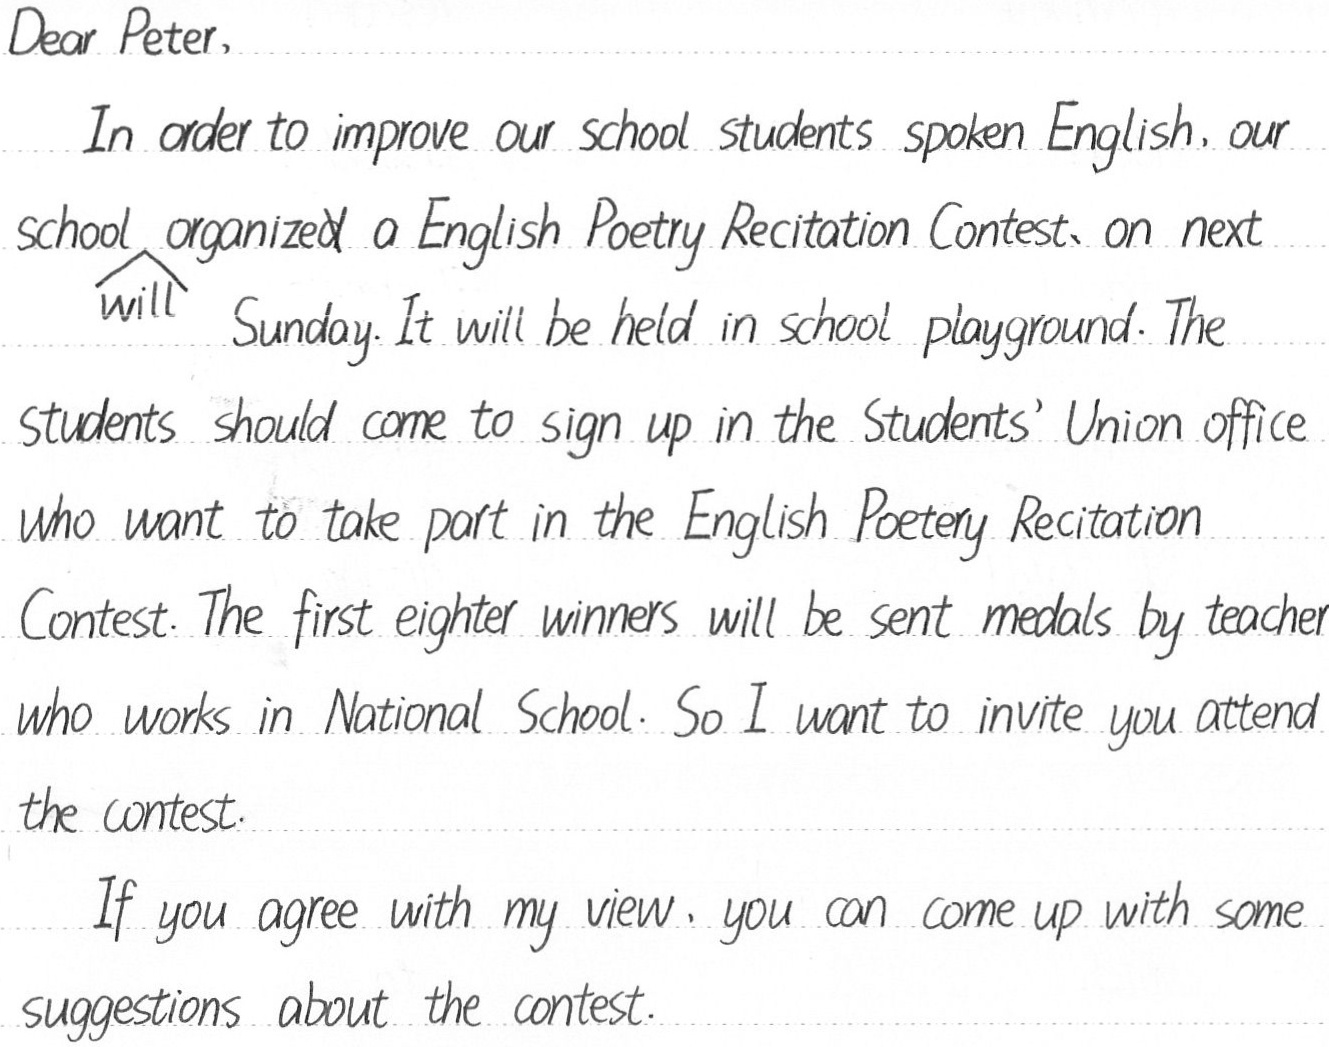 Dear Peter,
In order to improve our school students spoken English, our
school will organize a English Poetry Recitation Contest、 on next
Sunday. It will be held in school playground. The
students should come to sign up in the Students' Union office
who want to take part in the English Poetery Recitation
Contest. The first eighter winners will be sent medals by teacher
who works in National School. So I want to invite you attend
the contest.
If you agree with my view, you can come up with some
suggestions about the contest.